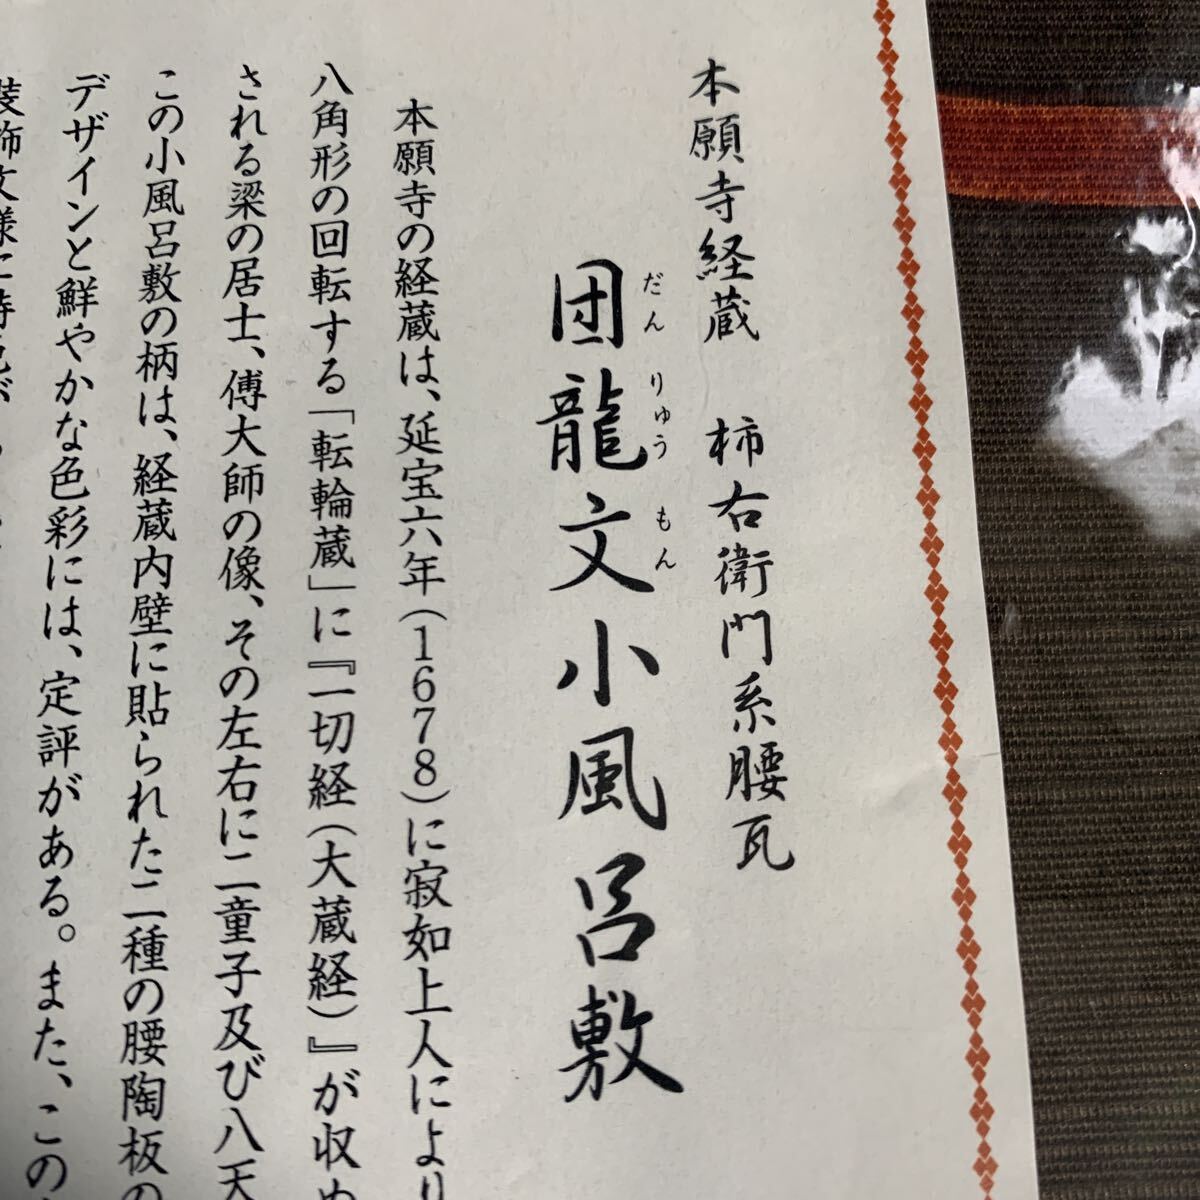 本願寺経蔵 柿右衛門系腰瓦
団龍文小風呂敷
だん りゅう もん
本願寺の経蔵は、延宝六年(1678)に寂如上人により
八角形の回転する「転輪蔵」に『一切経(大蔵経)』が収め
される梁の居士、傅大師の像、その左右に二童子及び八天
この小風呂敷の柄は、経蔵内壁に貼られた二種の腰陶板の
デザインと鮮やかな色彩には、定評がある。また、この
装飾文様に特色が